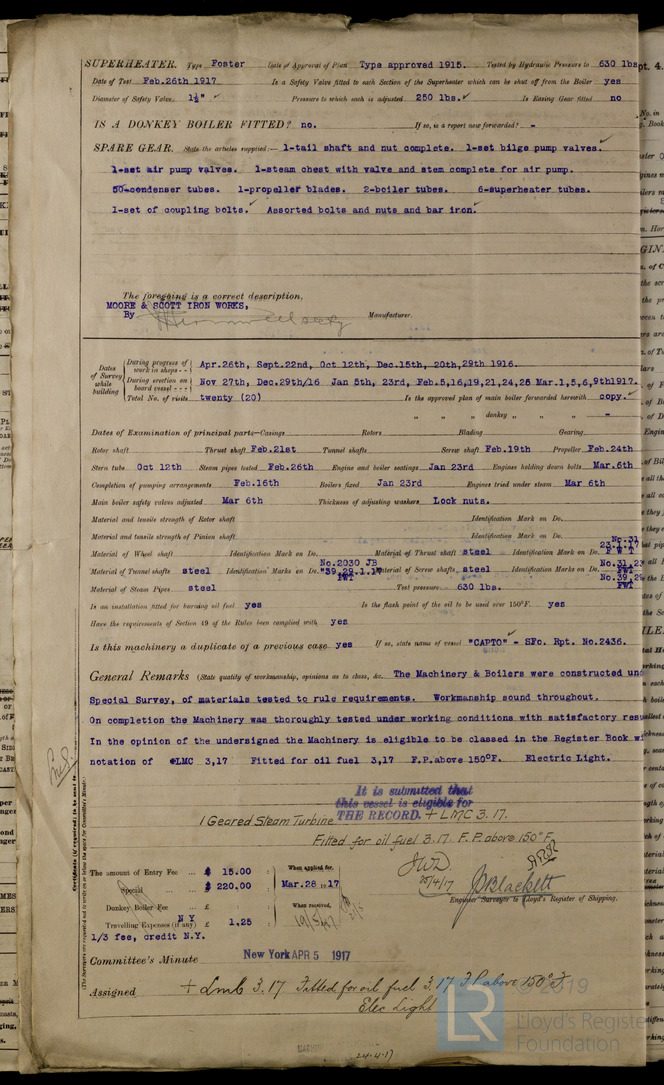 SUPERHEATER. Type Foster Date of Approval of Plan Type approved 1915. Tested by Hydraulic Pressure to 630 lbs
Date of Test Feb.26th 1917 Is a Safety Valve fitted to each Section of the Superheater which can be shut off from the Boiler yes
Diameter of Safety Valve 1½" Pressure to which each is adjusted 250 lbs. Is Easing Gear fitted no
IS A DONKEY BOILER FITTED? no. If so, is a report now forwarded? -
SPARE GEAR. State the articles supplied:— 1-tail shaft and nut complete. 1-set bilge pump valves.
1-set air pump valves. 1-steam chest with valve and stem complete for air pump.
50-condenser tubes. 1-propeller blades. 2-boiler tubes. 6-superheater tubes.
1-set of coupling bolts. Assorted bolts and nuts and bar iron.
The foregoing is a correct description,
MOORE & SCOTT IRON WORKS,
By Manufacturer.
Dates of Survey while building
During progress of work in shops - - Apr.26th, Sept.22nd, Oct 12th, Dec.15th, 20th,29th 1916.
During erection on board vessel - - - Nov 27th, Dec.29th/16 Jan 5th, 23rd, Feb.5,16,19,21,24,26 Mar.1,5,6,9th1917.
Total No. of visits twenty (20) Is the approved plan of main boiler forwarded herewith copy.
" " " donkey " " " -
Dates of Examination of principal parts—Casings Rotors Blading Gearing
Rotor shaft Thrust shaft Feb.21st Tunnel shafts Screw shaft Feb.19th Propeller Feb.24th
Stern tube Oct 12th Steam pipes tested Feb.26th Engine and boiler seatings Jan 23rd Engines holding down bolts Mar.6th
Completion of pumping arrangements Feb.16th Boilers fixed Jan 23rd Engines tried under steam Mar 6th
Main boiler safety valves adjusted Mar 6th Thickness of adjusting washers Lock nuts.
Material and tensile strength of Rotor shaft Identification Mark on Do.
Material and tensile strength of Pinion shaft Identification Mark on Do.
Material of Wheel shaft Identification Mark on Do. Material of Thrust shaft steel Identification Mark on Do.
Material of Tunnel shafts steel Identification Marks on Do. No.2030 JB Material of Screw shafts steel Identification Marks on Do.
Material of Steam Pipes steel Test pressure 630 lbs.
Is an installation fitted for burning oil fuel yes Is the flash point of the oil to be used over 150°F. yes
Have the requirements of Section 49 of the Rules been complied with yes
Is this machinery a duplicate of a previous case yes If so, state name of vessel "CAPTO" - SFc. Rpt. No.2436.
General Remarks (State quality of workmanship, opinions as to class, &c. The Machinery & Boilers were constructed und
Special Survey, of materials tested to rule requirements. Workmanship sound throughout.
On completion the Machinery was thoroughly tested under working conditions with satisfactory resu
In the opinion of the undersigned the Machinery is eligible to be classed in the Register Book wi
notation of LMC 3,17 Fitted for oil fuel 3,17 F.P.above 150°F. Electric Light.
It is submitted that
this vessel is eligible for
THE RECORD. + LMC 3.17.
1 Geared Steam Turbine
Fitted for oil fuel 3.17. F.P. above 150°F.
The amount of Entry Fee $ 15.00 When applied for,
Special $ 220.00 Mar.28 17
Donkey Boiler Fee £ When received,
Travelling Expenses (if any) N Y £ 1.25
1/3 fee, credit N.Y.
JWD
25/4/17
J Blackett
Engineer Surveyor to Lloyd's Register of Shipping.
Committee's Minute New York APR 5 1917
Assigned + Lmc 3.17 Fitted for oil fuel 3.17 FP above 150°F
Elec Light
24.4.17
© 2019
Lloyd's Register
Foundation